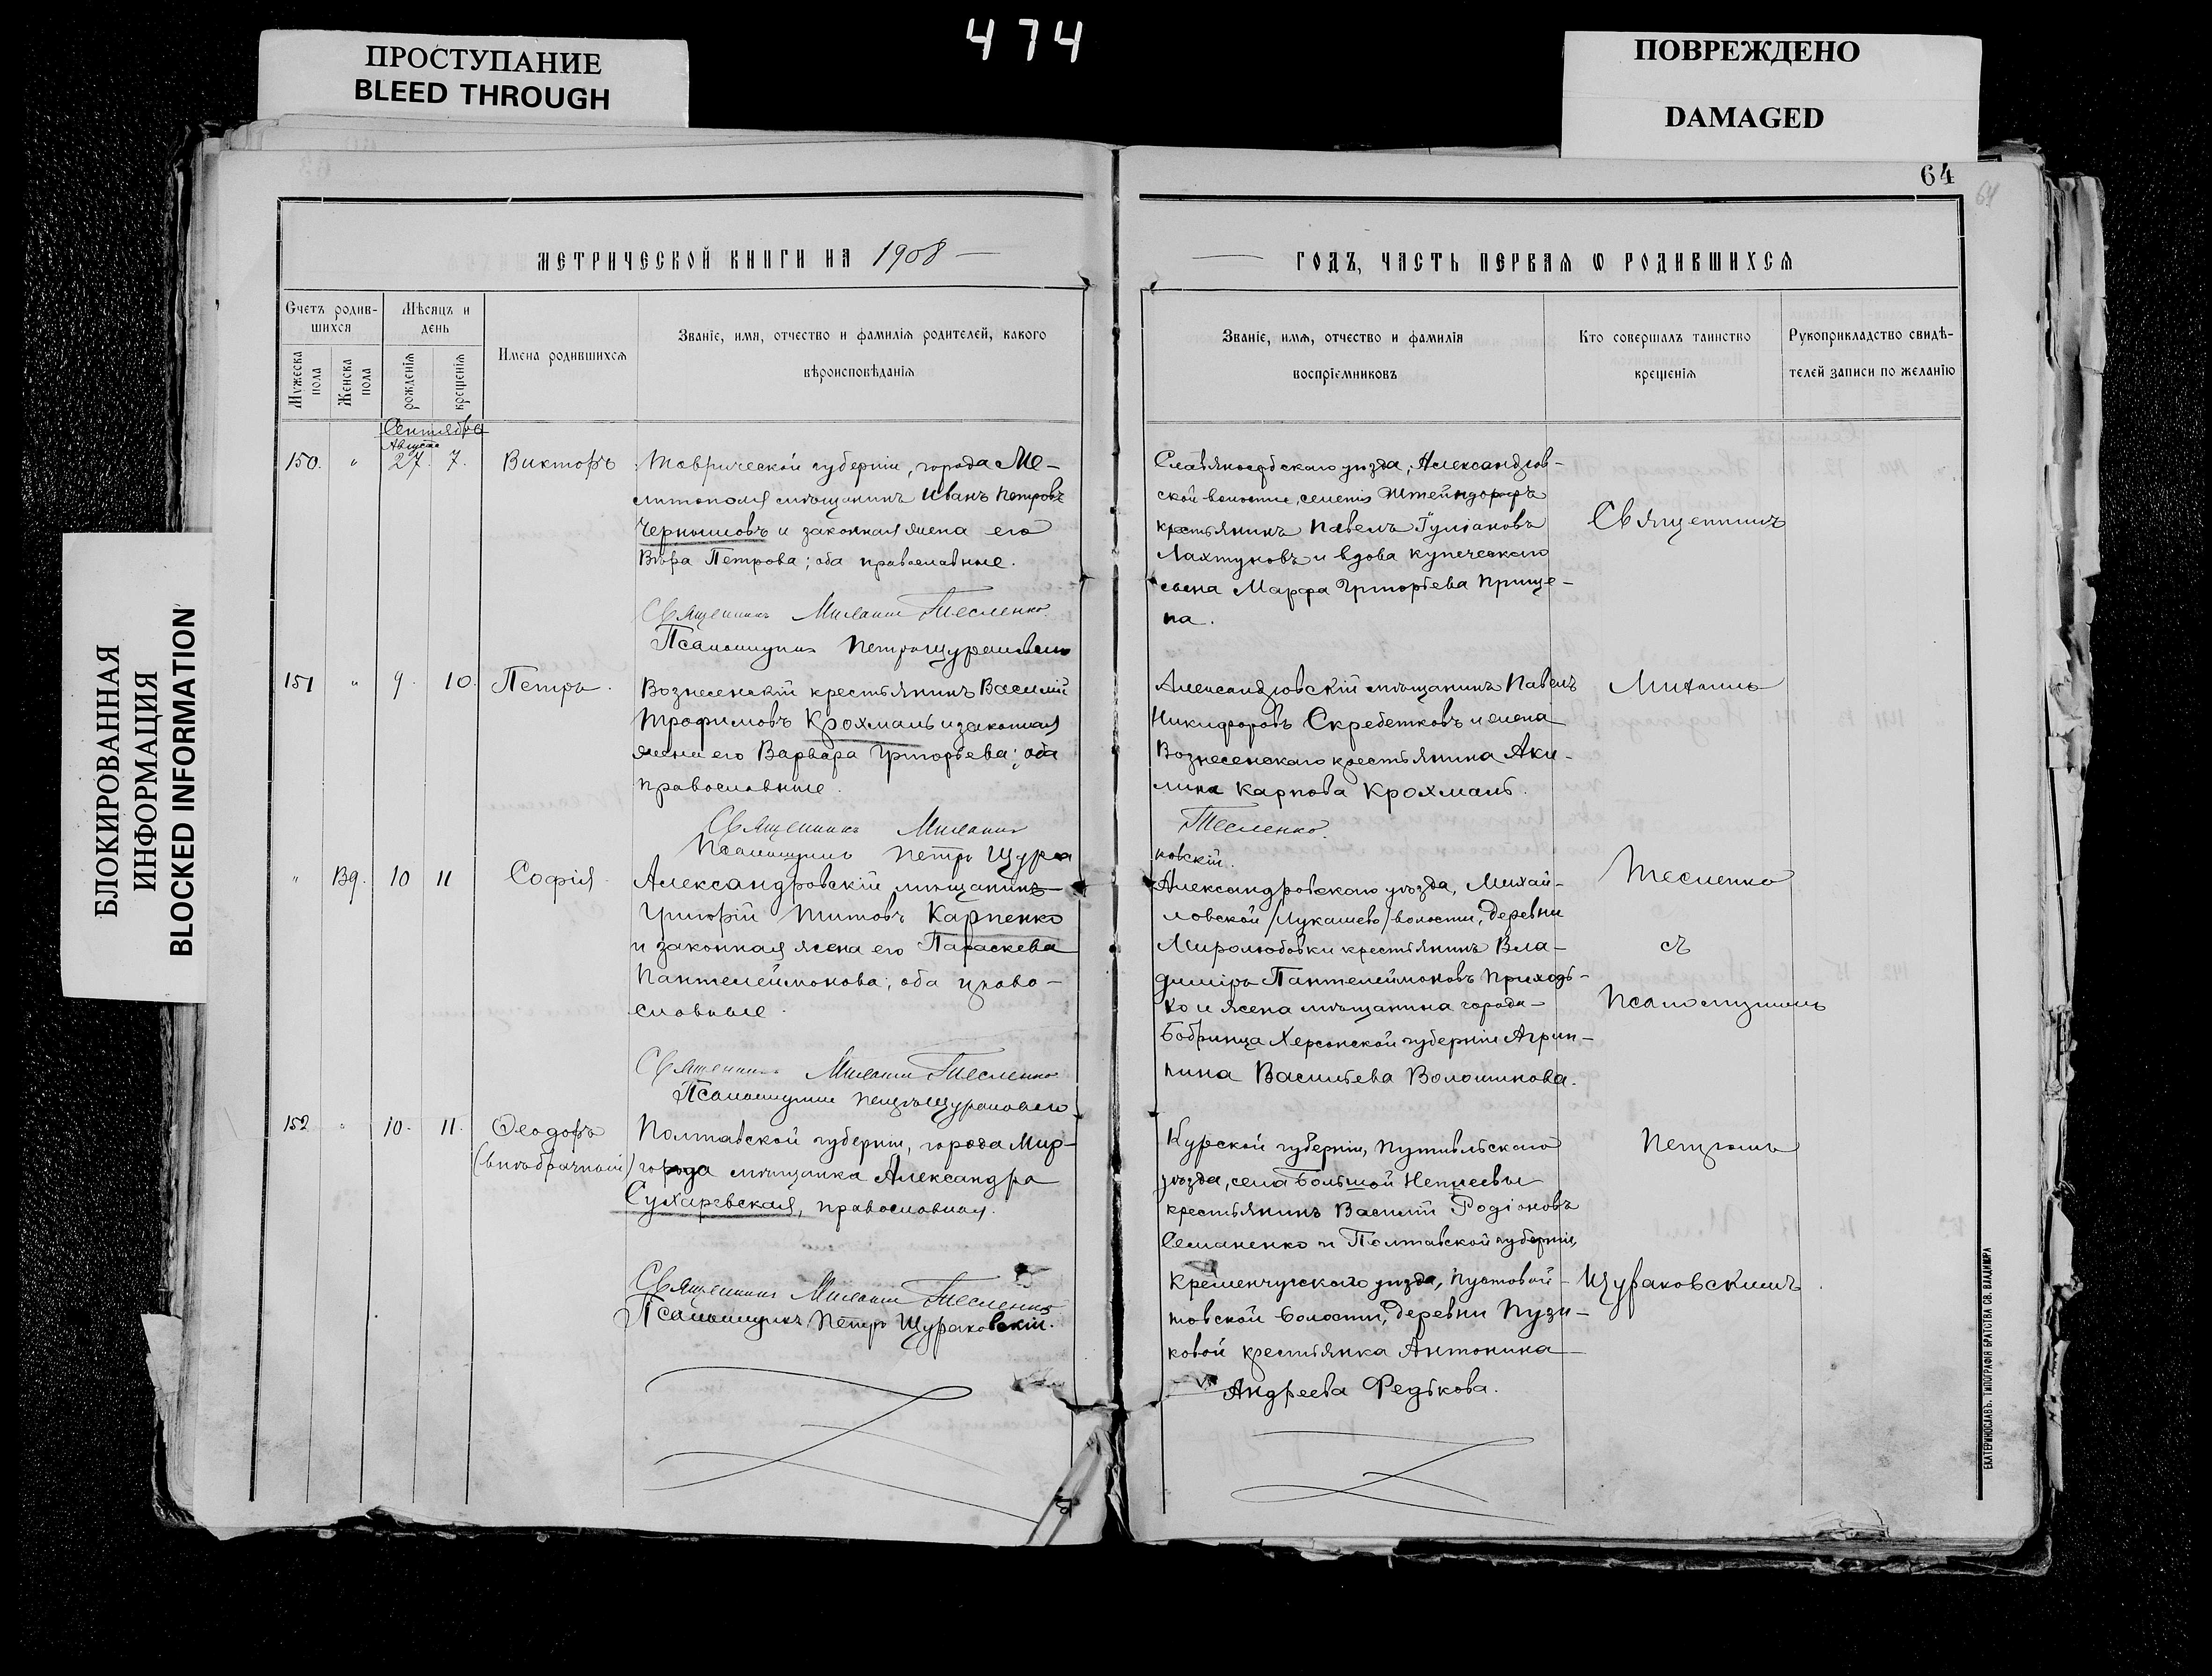 474
ПРОСТУПАНИЕ
BLEED THROUGH
ПОВРЕЖДЕНО
DAMAGED
БЛОКИРОВАННАЯ
ИНФОРМАЦИЯ
BLOCKED INFORMATION
64
64
МЕТРИЧЕСКОЙ КНИГИ НА 1908
ГОДЪ, ЧАСТЬ ПЕРВАЯ Ѡ РОДИВШИХСЯ
Счетъ родив-
шихся
Мужеска
пола
Женска
пола
Мѣсяцъ и
день
рожденія
крещенія
Имена родившихся
Званіе, имя, отчество и фамилія родителей, какого
вѣроисповѣданія
Званіе, имя, отчество и фамилія
воспріемниковъ
Кто совершалъ таинство
крещенія
Рукоприкладство свидѣ-
телей записи по желанію
Сентября
Августа
150. " 27. 7. Викторъ
Таврической губерніи, города Ме-
литополя мѣщанинъ Иванъ Петровъ
Чернышовъ и законная жена его
Вѣра Петрова; оба православные.
Священникъ Михаилъ Тесленко
Псаломщикъ Петръ Щураковскій
Славяносербскаго уѣзда, Александров-
ской волости, селенія Штейндорфъ
крестьянинъ Павелъ Іуліановъ
Лахтуновъ и вдова купеческаго
сына Марфа Григорьева Прище-
па.
151 " 9. 10. Петръ.
Вознесенскій крестьянинъ Василій
Трофимовъ Крохмаль и законная
жена его Варвара Григорьева; оба
православные.
Священникъ Михаилъ
Псаломщикъ Петръ Щура
Александровскій мѣщанинъ Павелъ
Никифоровъ Скребетковъ и жена
Вознесенскаго крестьянина Аки-
лина Карпова Крохмаль.
Тесленко.
ковскій.
" 139. 10 11 Софія
Александровскій мѣщанинъ
Григорій Титовъ Карпенко
и законная жена его Параскева
Пантелеймонова; оба право-
славные.
Священникъ Михаилъ Тесленко
Псаломщикъ Петръ Щураковскій
Александровскаго уѣзда, Михай-
ловской /Лукашево/ волости, деревни
Миролюбовки крестьянинъ Вла-
диміръ Пантелеймоновъ Приходь-
ко и жена мѣщанина города
Бобринца Херсонской губерніи Агрип-
пина Васильева Волошинова.
152 " 10. 11. Ѳеодоръ
(внѣбрачный)
Полтавской губерніи, города Мир-
города мѣщанка Александра
Сухаревская, православная.
Священникъ Михаилъ Тесленко
Псаломщикъ Петръ Щураковскій.
Курской губерніи, Путивльскаго
уѣзда, села Большой Неплюевы
крестьянинъ Василій Родіоновъ
Семаненко и Полтавской губерніи,
Кременчугскаго уѣзда, Пустовой-
товской волости, деревни Пузи-
ковой крестьянка Антонина
Андреева Федькова.
Священникъ
Михаилъ
Тесленко
съ
Псаломщикомъ
Петромъ
Щураковскимъ.
ЕКАТЕРИНОСЛАВЪ. ТИПОГРАФІЯ БРАТСТВА СВ. ВЛАДИМІРА